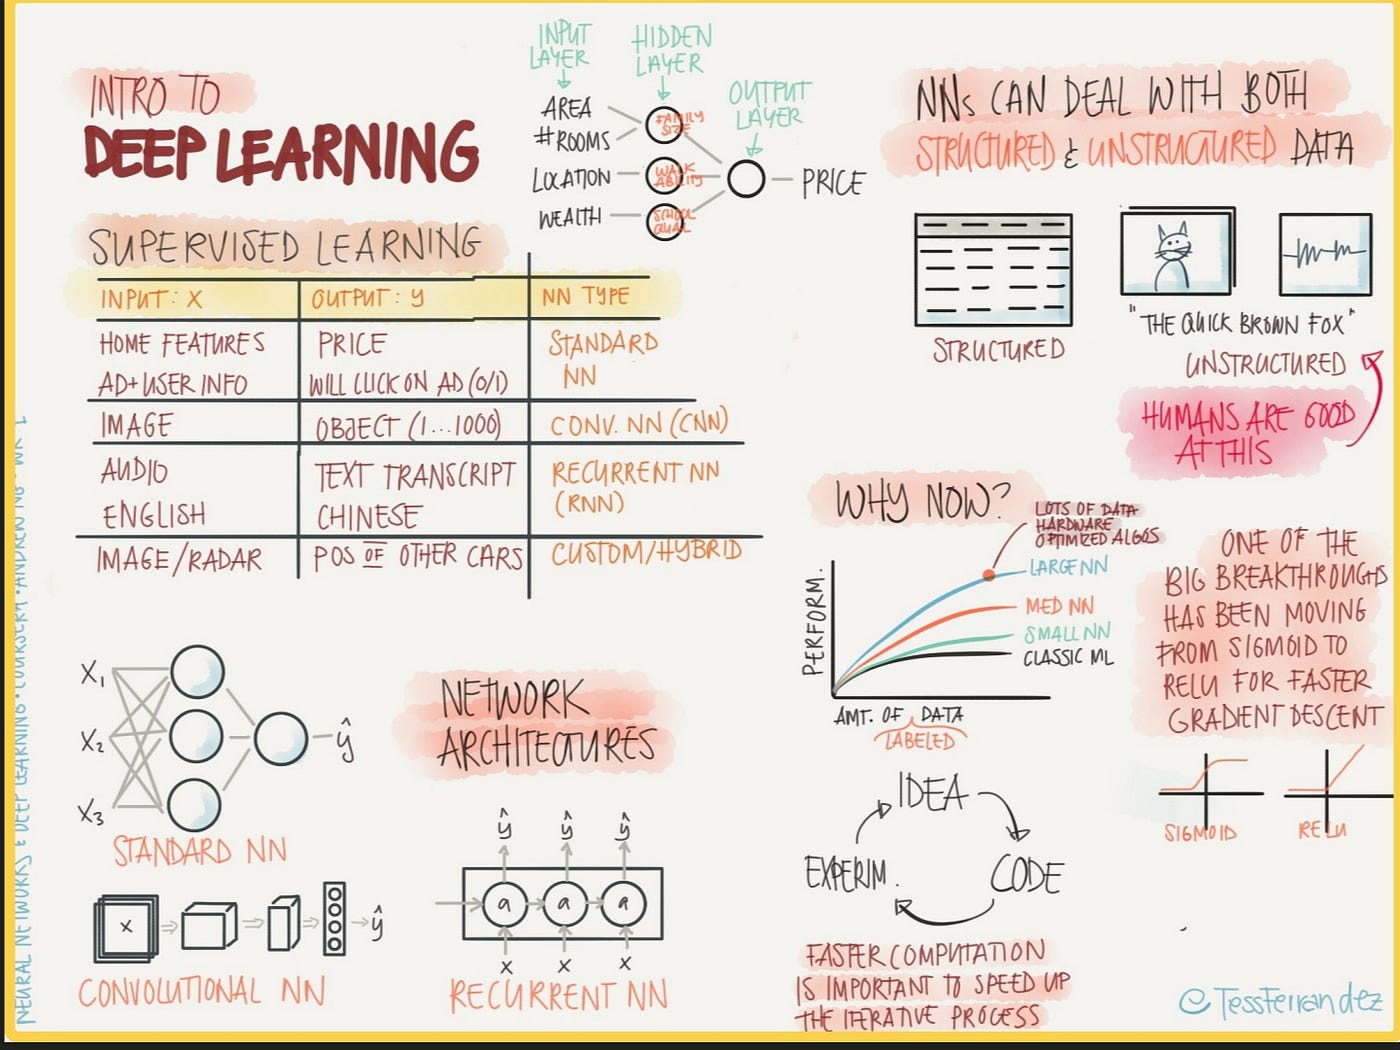 INTRO TO
DEEP LEARNING
INPUT
LAYER
HIDDEN
LAYER
OUTPUT
LAYER
AREA
#ROOMS
LOCATION
WEALTH
FAMILY
SIZE
WALK
ABILITY
SCHOOL
QUAL
PRICE
SUPERVISED LEARNING
INPUT: X OUTPUT: Y NN TYPE
HOME FEATURES PRICE STANDARD
AD+USER INFO WILL CLICK ON AD (0/1) NN
IMAGE OBJECT (1...1000) CONV. NN (CNN)
AUDIO TEXT TRANSCRIPT RECURRENT NN
ENGLISH CHINESE (RNN)
IMAGE/RADAR POS OF OTHER CARS CUSTOM/HYBRID
NNs CAN DEAL WITH BOTH
STRUCTURED & UNSTRUCTURED DATA
STRUCTURED
"THE QUICK BROWN FOX"
UNSTRUCTURED
HUMANS ARE GOOD
AT THIS
WHY NOW?
LOTS OF DATA
HARDWARE
OPTIMIZED ALGOS
LARGE NN
MED NN
SMALL NN
CLASSIC ML
PERFORM.
AMT. OF DATA
LABELED
ONE OF THE
BIG BREAKTHROUGHS
HAS BEEN MOVING
FROM SIGMOID TO
RELU FOR FASTER
GRADIENT DESCENT
SIGMOID
RELU
NETWORK
ARCHITECTURES
X₁
X₂
X₃
ŷ
STANDARD NN
x
ŷ
CONVOLUTIONAL NN
ŷ ŷ ŷ
a a a
x x x
RECURRENT NN
IDEA
CODE
EXPERIM.
FASTER COMPUTATION
IS IMPORTANT TO SPEED UP
THE ITERATIVE PROCESS
@TessFerrandez
NEURAL NETWORKS & DEEP LEARNING • COURSERA • ANDREW NG